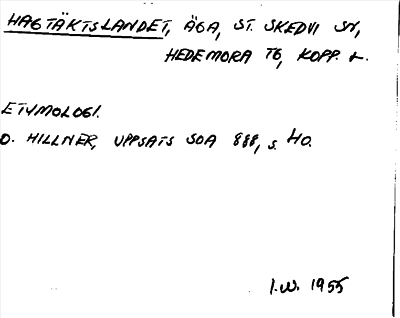 HAGTÄKTSLANDET, ÄGA, ST. SKEDVI SN,
HEDEMORA TG, KOPP. L.
ETYMOLOGI.
O. HILLNER, UPPSATS SOA 888, s. 40.
I.W. 1955